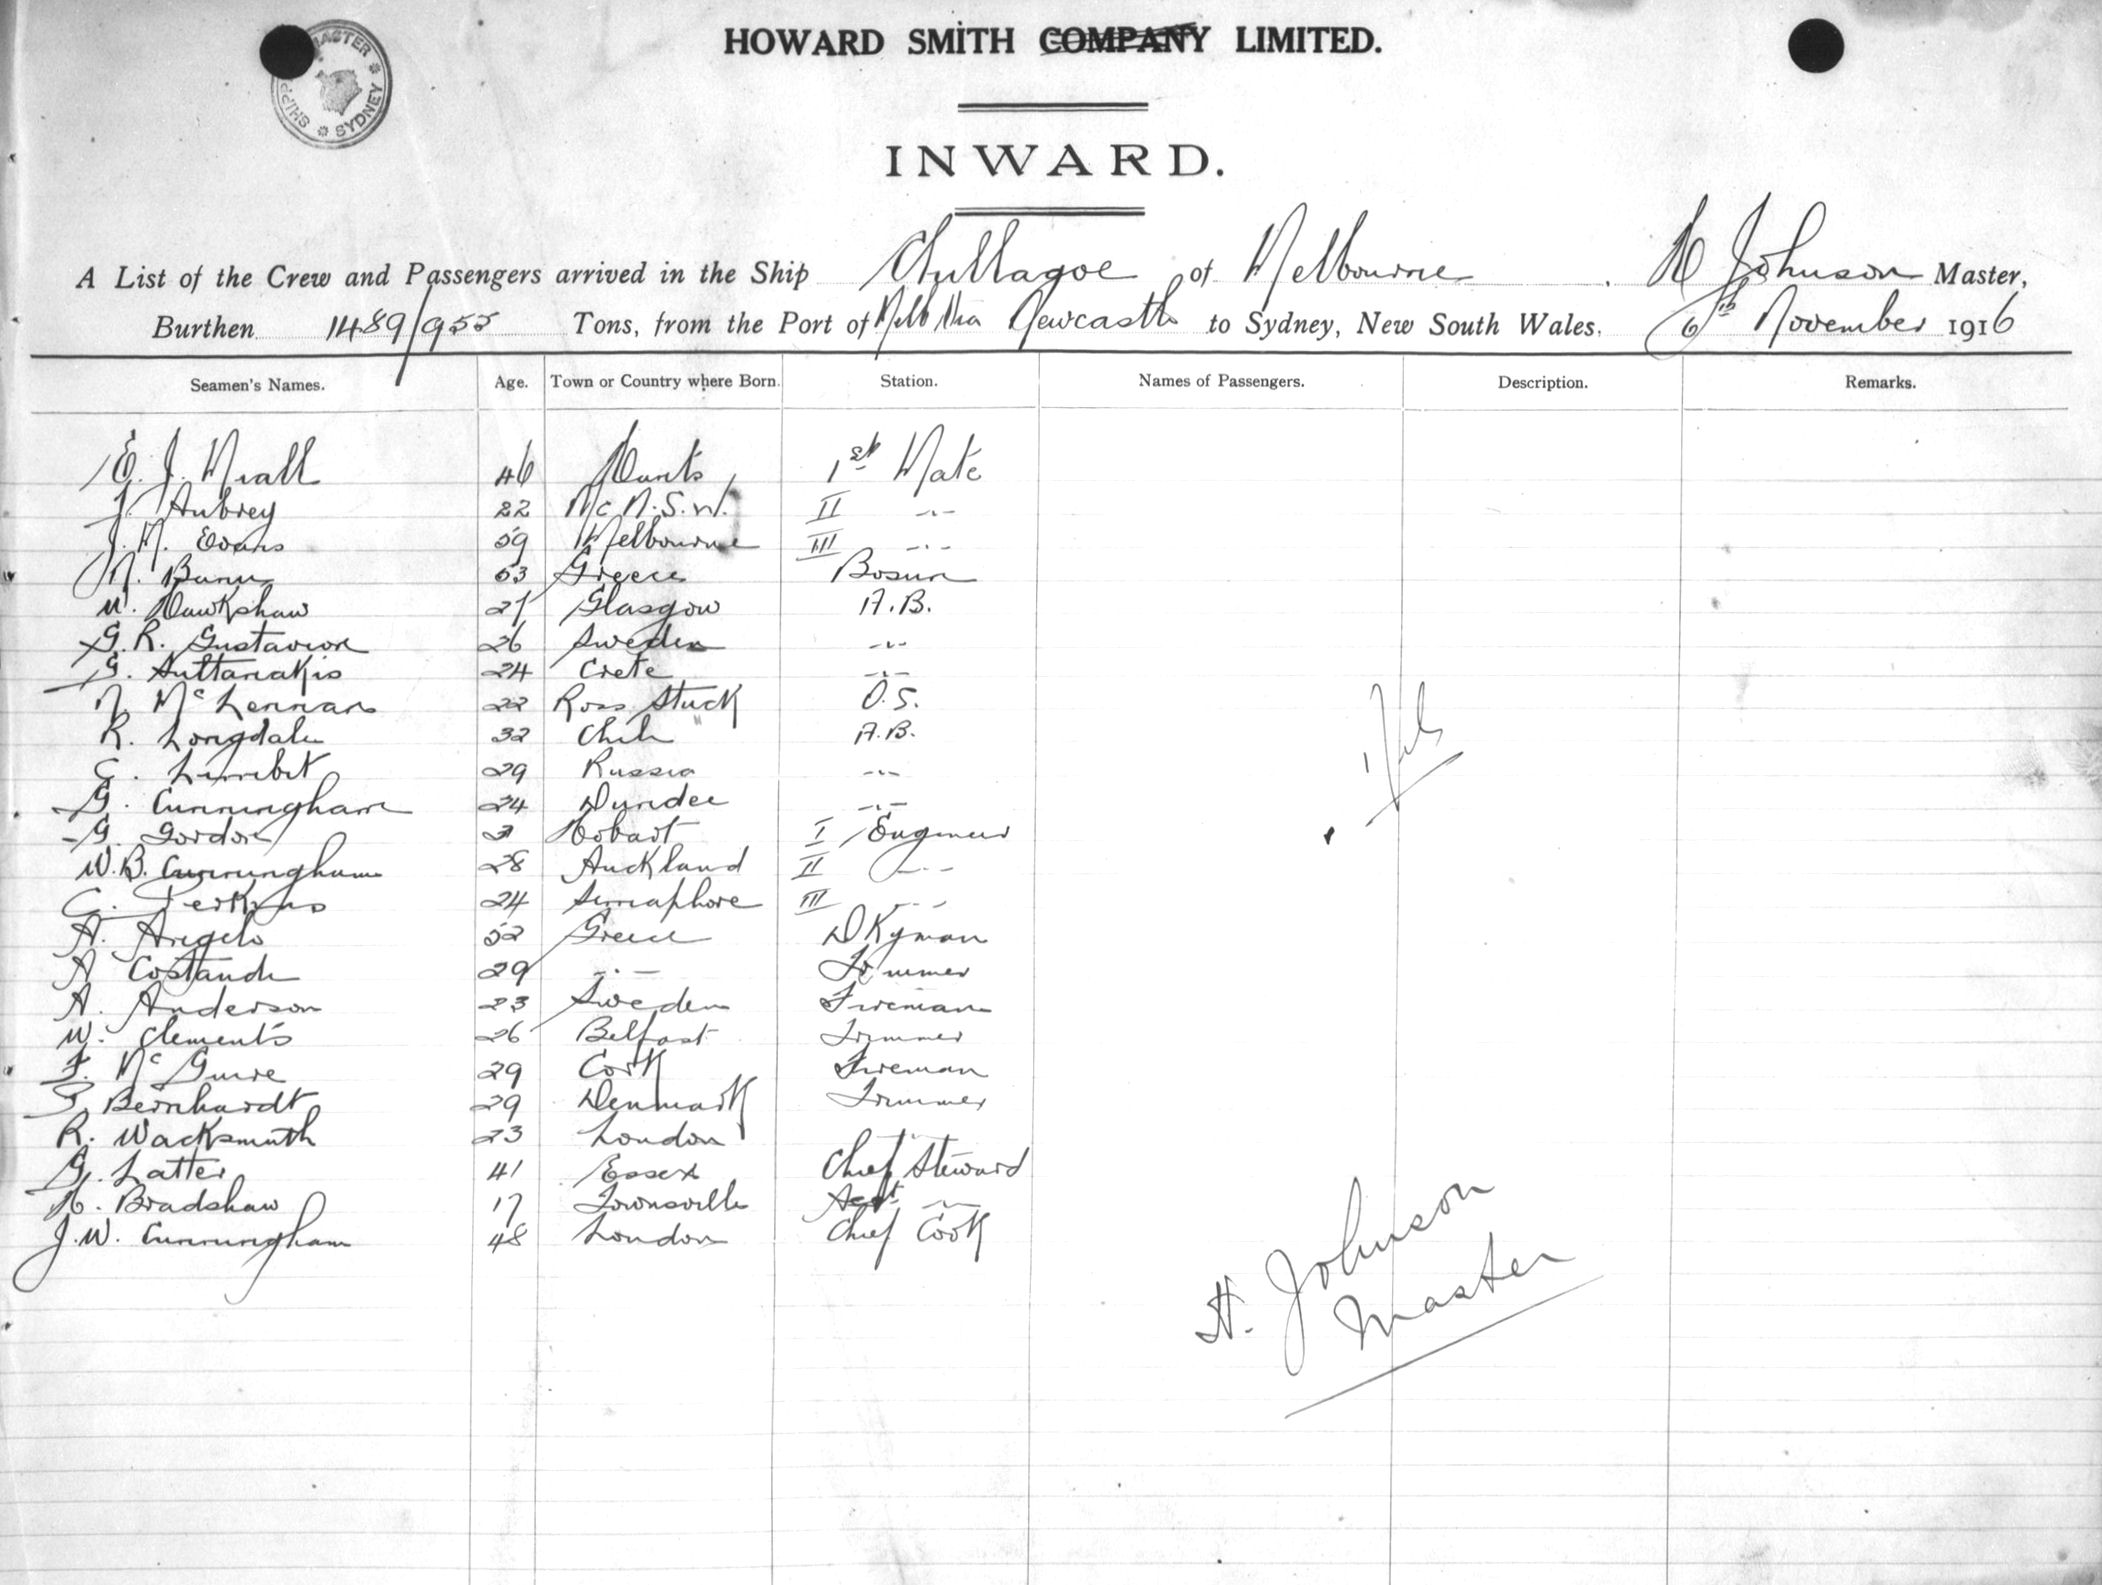 HOWARD SMITH COMPANY LIMITED.
MASTER SYDNEY SHIPP
INWARD.
A List of the Crew and Passengers arrived in the Ship Chillagoe of Melbourne. H Johnson Master,
Burthen 1489/955 Tons, from the Port of Melb Via Newcastle to Sydney, New South Wales. 6th November 1916
Seamen's Names. Age. Town or Country where Born. Station. Names of Passengers. Description. Remarks.
E. J. Niall 46 Hants 1st Mate
J. Aubrey 22 Nc N.S.W. II -"-
J. M. Evans 59 Melbourne III -"-
N. 53 Greece Bosun
W. Hawkshaw 27 Glasgow A.B.
G. R. Gustavson 26 Sweden -"-
G. 24 Crete -"-
N. McLennan 22 Ross O.S.
R. Longdale 32 Chili A.B.
C. 29 Russia -"-
G. Cunningham 24 Dundee -"-
G. Gordon Hobart I Engineer
W. B. Cunningham 28 Auckland II -"-
C. Perkins 24 Semaphore III -"-
A. Angelo 52 Greece DKyman
A Costandi 29 -"- Trimmer
A. Anderson 23 Sweden Fireman
W. Clements 26 Belfast Trimmer
F. McGuire 29 Cork Fireman
Bernhardt 29 Denmark Trimmer
R. Wacksmuth 23 London
G. Latter 41 Essex Chief Steward
H. Bradshaw 17 Townsville Asst -"-
J. W. Cunningham 48 London Chief Cook
H. Johnson
Master